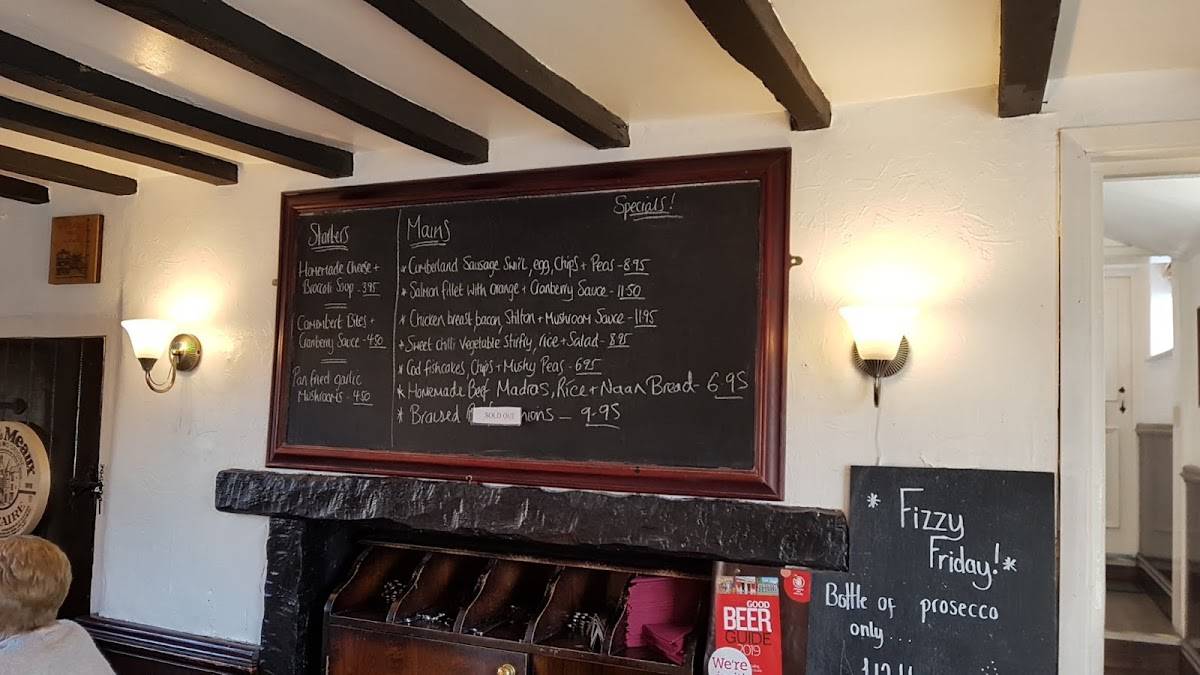 Specials!
Starters
Homemade Cheese +
Broccoli Soup - 3.95
Camembert Bites +
Cranberry Sauce - 4.50
Pan fried garlic
Mushrooms - 4.50
Mains
* Cumberland Sausage Swirl, egg, Chips + Peas - 8.95
* Salmon fillet with orange + Cranberry Sauce - 11.50
* Chicken breast, bacon, Stilton + Mushroom Sauce - 11.95
* Sweet chilli vegetable stirfry, rice + Salad - 8.95
* Cod fishcakes, Chips + Mushy Peas - 6.95
* Homemade Beef Madras, Rice + Naan Bread - 6.95
* Braised onions - 9.95
SOLD OUT
* Fizzy
Friday! *
Bottle of prosecco
only...
GOOD
BEER
GUIDE
2019
We're